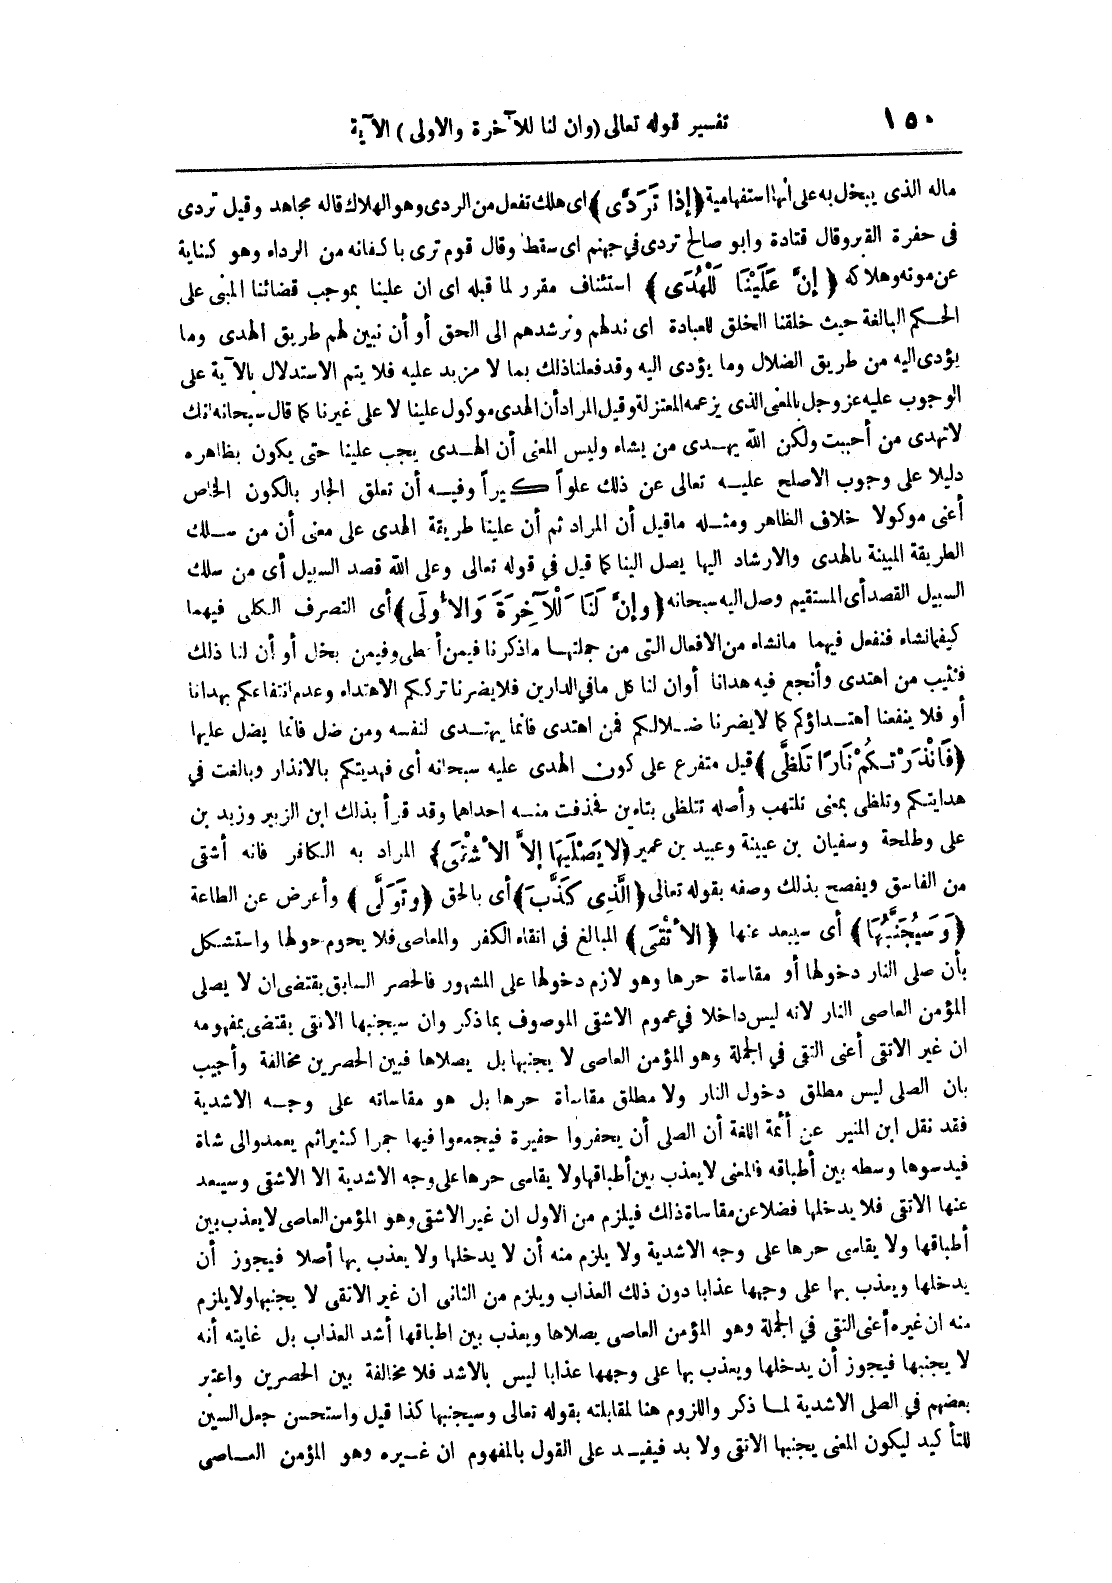 ١٥٠
تفسير قوله تعالى (وان لنا للآخرة والاولى) الآية
ماله الذى يبخل به على أنها استفهامية ﴿إذا تَرَدَّى﴾ اى هلك تفعل من الردى وهو الهلاك قاله مجاهد وقيل تردى
فى حفرة القبر وقال قتادة وابو صالح تردى في جهنم اى سقط وقال قوم تردى با كفانه من الرداء وهو كناية
عن موته وهلاكه ﴿إنَّ عَلَيْنَا لَلْهُدَى﴾ استئناف مقرر لما قبله اى ان علينا بموجب قضائنا المبنى على
الحكم البالغة حيث خلقنا الخلق للعبادة اى ندلهم ونرشدهم الى الحق أو أن نبين لهم طريق الهدى وما
يؤدى اليه من طريق الضلال وما يؤدى اليه وقد فعلنا ذلك بما لا مزيد عليه فلا يتم الاستدلال بالآية على
الوجوب عليه عز وجل بالمعنى الذى يزعمه المعتزلة وقيل المراد أن الهدى موكول علينا لا على غيرنا كما قال سبحانه انك
لا تهدى من أحببت ولكن الله يهدى من يشاء وليس المعنى أن الهدى يجب علينا حتى يكون بظاهره
دليلا على وجوب الاصلح عليه تعالى عن ذلك علواً كبيراً وفيه أن تعلق الجار بالكون الخاص
أعنى موكولا خلاف الظاهر ومثله ماقيل أن المراد ثم أن علينا طريقة الهدى على معنى أن من سلك
الطريقة المبينة بالهدى والارشاد اليها يصل الينا كما قيل في قوله تعالى وعلى الله قصد السبيل أى من سلك
السبيل القصد أى المستقيم وصل اليه سبحانه ﴿وإنَّ لَنَا لَلْآخِرَةَ وَالاُولَى﴾ أى التصرف الكلى فيهما
كيفما نشاء فنفعل فيهما مانشاء من الافعال التى من جملتها ماذكرنا فيمن أعطى وفيمن بخل أو أن لنا ذلك
فنثيب من اهتدى وأنجع فيه هدانا أو ان لنا كل مافي الدارين فلا يضرنا ترككم الاهتداء وعدم انتفاعكم بهدانا
أو فلا ينفعنا اهتداؤكم كما لايضرنا ضلالكم فمن اهتدى فانما يهتدى لنفسه ومن ضل فانما يضل عليها
﴿فَأَنْذَرْتُكُمْ نَارًا تَلَظَّى﴾ قيل متفرع على كون الهدى عليه سبحانه أى فهديتكم بالانذار وبالغت في
هدايتكم وتلظى بمعنى تلتهب وأصله تتلظى بتاءين فحذفت منه احداهما وقد قرأ بذلك ابن الزبير وزيد بن
على وطلحة وسفيان بن عيينة وعبيد بن عمير ﴿لا يَصْلَيهَا إلاَّ الاَشْقَى﴾ المراد به الكافر فانه أشقى
من الفاسق ويفصح بذلك وصفه بقوله تعالى ﴿الَّذِى كَذَّبَ﴾ أى بالحق ﴿وتَوَلَّى﴾ وأعرض عن الطاعة
﴿وَسَيُجَنَّبُهَا﴾ أى سيبعد عنها ﴿الاَتْقَى﴾ المبالغ في اتقاء الكفر والمعاصى فلا يحوم حولها واستشكل
بأن صلى النار دخولها أو مقاساة حرها وهو لازم دخولها على المشهور فالحصر السابق يقتضى ان لا يصلى
المؤمن العاصى النار لانه ليس داخلا في عموم الاشقى الموصوف بما ذكر وان سيجنبها الاتقى يقتضى بمفهومه
ان غير الاتقى أعنى التقى في الجملة وهو المؤمن العاصى لا يجنبها بل يصلاها فبين الحصرين مخالفة وأجيب
بان الصلى ليس مطلق دخول النار ولا مطلق مقاساة حرها بل هو مقاساته على وجه الاشدية
فقد نقل ابن المنير عن أئمة اللغة أن الصلى أن يحفروا حفيرة فيجمعوا فيها جمرا كثيرا ثم يعمدوا الى شاة
فيدسوها وسطه بين أطباقه فالمعنى لا يعذب بين أطباقها ولا يقاسى حرها على وجه الاشدية الا الاشقى وسيبعد
عنها الاتقى فلا يدخلها فضلا عن مقاساة ذلك فيلزم من الاول ان غير الاشقى وهو المؤمن العاصى لا يعذب بين
أطباقها ولا يقاسى حرها على وجه الاشدية ولا يلزم منه أن لا يدخلها ولا يعذب بها أصلا فيجوز أن
يدخلها ويعذب بها على وجهها عذابا دون ذلك العذاب ويلزم من الثانى ان غير الاتقى لا يجنبها ولا يلزم
منه ان غيره أعنى التقى في الجملة وهو المؤمن العاصى يصلاها ويعذب بين اطباقها أشد العذاب بل غايته أنه
لا يجنبها فيجوز أن يدخلها ويعذب بها على وجهها عذابا ليس بالاشد فلا مخالفة بين الحصرين واعتبر
بعضهم في الصلى الاشدية لما ذكر واللزوم هنا لمقابلته بقوله تعالى وسيجنبها كذا قيل واستحسن جعل السين
للتأكيد ليكون المعنى يجنبها الاتقى ولا بد فيفيد على القول بالمفهوم ان غيره وهو المؤمن العاصى